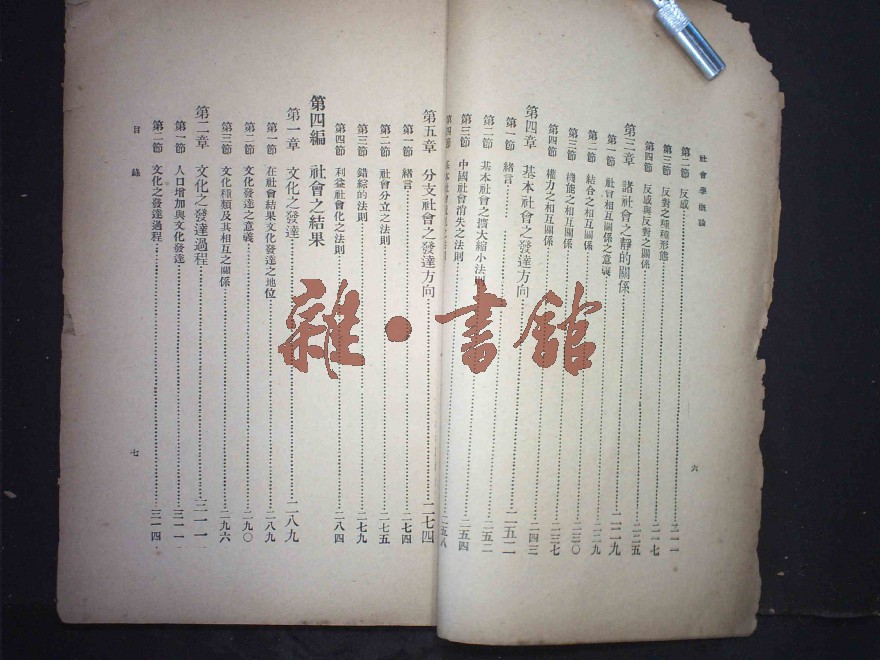 社會學概論
第二節 反感……二一一
第三節 反對之種種形態……二一七
第四節 反感與反對之關係……二二五
第三章 諸社會之靜的關係……二二九
第一節 社會相互關係之意義
第二節 結合之相互關係……二二九
第三節 機能之相互關係……二三〇
第四節 權力之相互關係……二三七
第四章 基本社會之發達方向……二四三
第一節 緒言……二五二
第二節 基本社會之擴大縮小法則……二五二
第三節 中國社會消失之法則……二五四
第四節 基本社會……之法則……二五八
六
第五章 分支社會之發達方向……二七四
第一節 緒言……二七四
第二節 社會分立之法則……二七五
第三節 錯綜的法則……二七九
第四節 利益社會化之法則……二八四
第四編 社會之結果
第一章 文化之發達……二八九
第一節 在社會結果文化發達之地位……二八九
第二節 文化發達之意義……二九〇
第三節 文化種類及其相互之關係……二九六
第二章 文化之發達過程……三一一
第一節 人口增加與文化發達……三一一
第二節 文化之發達過程……三一四
目錄
七
雜·書館